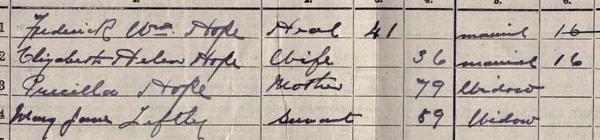 1 Frederick Wm. Hope Head 41 married 16
2 Elizabeth Helen Hope Wife 36 married 16
3 Priscilla Hope Mother 79 Widow
4 Mary Jane Leftley Servant 59 Widow